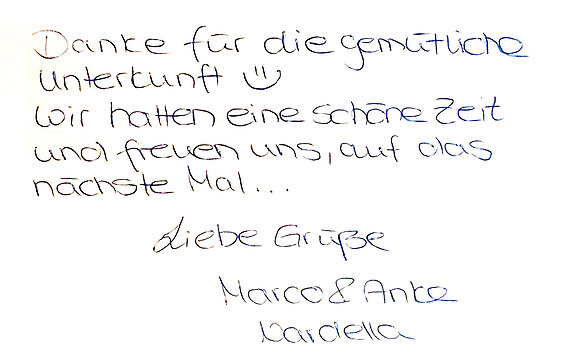 Danke für die gemütliche
Unterkunft ☺
Wir hatten eine schöne Zeit
und freuen uns, auf das
nächste Mal...
Liebe Grüße
Marco & Anke